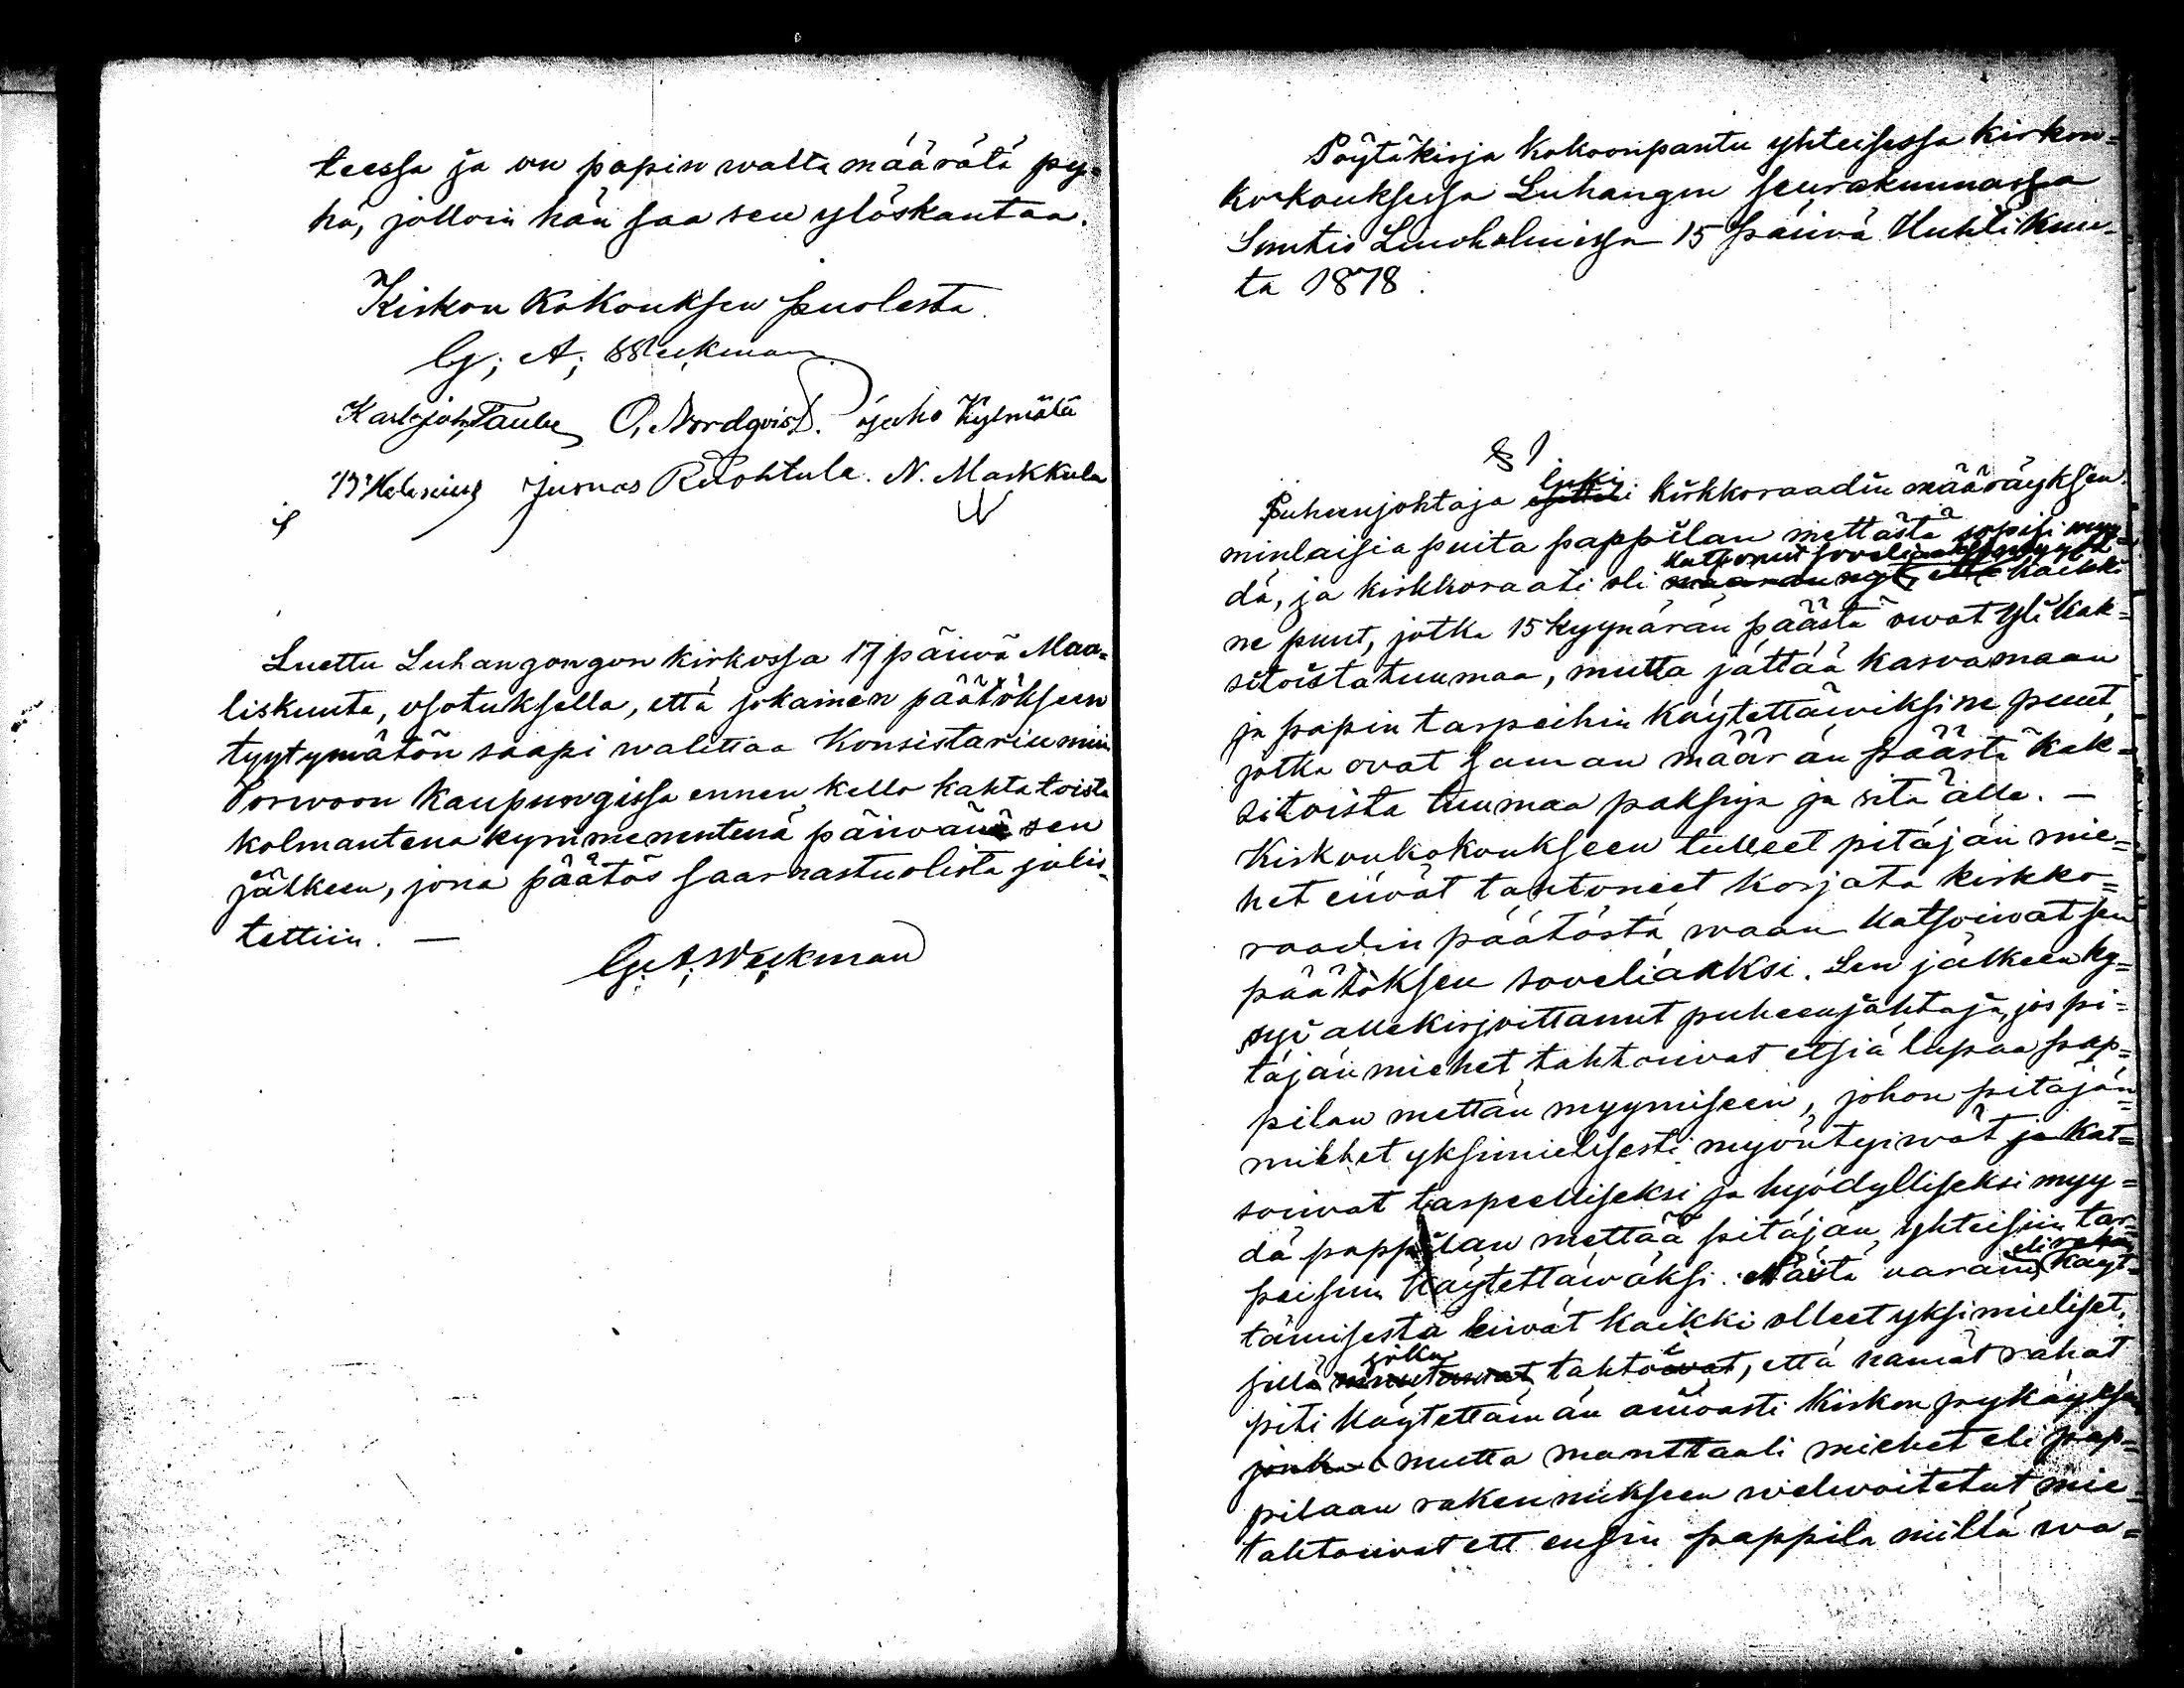 teessa ja on papin walta määrätä py-
hä, jolloin hän saa sen ylöskantaa.
Kirkon Kokouksen puolesta
G; A; Weckman
Karl joh. Taube O, Nordqvist. juho Kylmälä
Helenius Junnas Ruohtula. N. Markkula
Luettu Luhangongon kirkossa 17 päiwä Maa-
liskuuta, osotuksella, että jokainen päätökseen
tyytymätön saapi walittaa Konsistoriumiin
Porwoon Kaupungissa ennen kello kahtatoista
kolmantena kymmenentenä päiwänä sen
jälkeen, jona päätös saarnastuolista julis-
tettiin. —
G; A; Weckman
Pöytäkirja Kokoonpantu yhteisessa kirkon-
kokouksessa Luhangon seurakunnassa
15 päiwä Huhtikuu-
ta 1878.
§ 1
luki
Puheenjohtaja kirkkoraadin määräyksen
minlaisia puita pappilan mettästä sopisi myy-
katsonut soveliaaksi myydä
dä, ja kirkkoraati oli kaikki
ne puut, jotka 15 kyynärän päästä owat yli kak-
sitoista tuumaa, mutta jättää kasvamaan
ja papin tarpeihin käytettäwiksi ne puut,
jotka ovat saman määrän päästä kak-
sitoista tuumaa paksuja ja sitä alle. —
Kirkonkokoukseen tulleet pitäjän mie-
het eiwät tahtoneet korjata kirkko-
raadin päätöstä waan katsoiwat sen
päätöksen soveliaaksi. Sen jälkeen ky-
syi allekirjoittanut puheenjohtaja, jos pi-
täjän miehet tahtoiwat etsiä lupaa pap-
pilan mettän myymiseen, johon pitäjän
miehet yksimielisesti myöntyiwät ja kat-
soiwat tarpeelliseksi ja hyödylliseksi myy-
dä pappilan mettää pitäjän yhteisiin tar-
peisiin käytettäwäksi. Näistä varain käyt-
tämisestä eiwät kaikki olleet yksimieliset,
jotka
sillä muutamat tahtoiwat, että nämät rahat
piti käytettämän ainoasti kirkon
jonka mutta manttaali miehet eli pap-
pilaan rakennukseen welwoitetut mie-
tahtoiwat ett ensin pappila niillä wa-